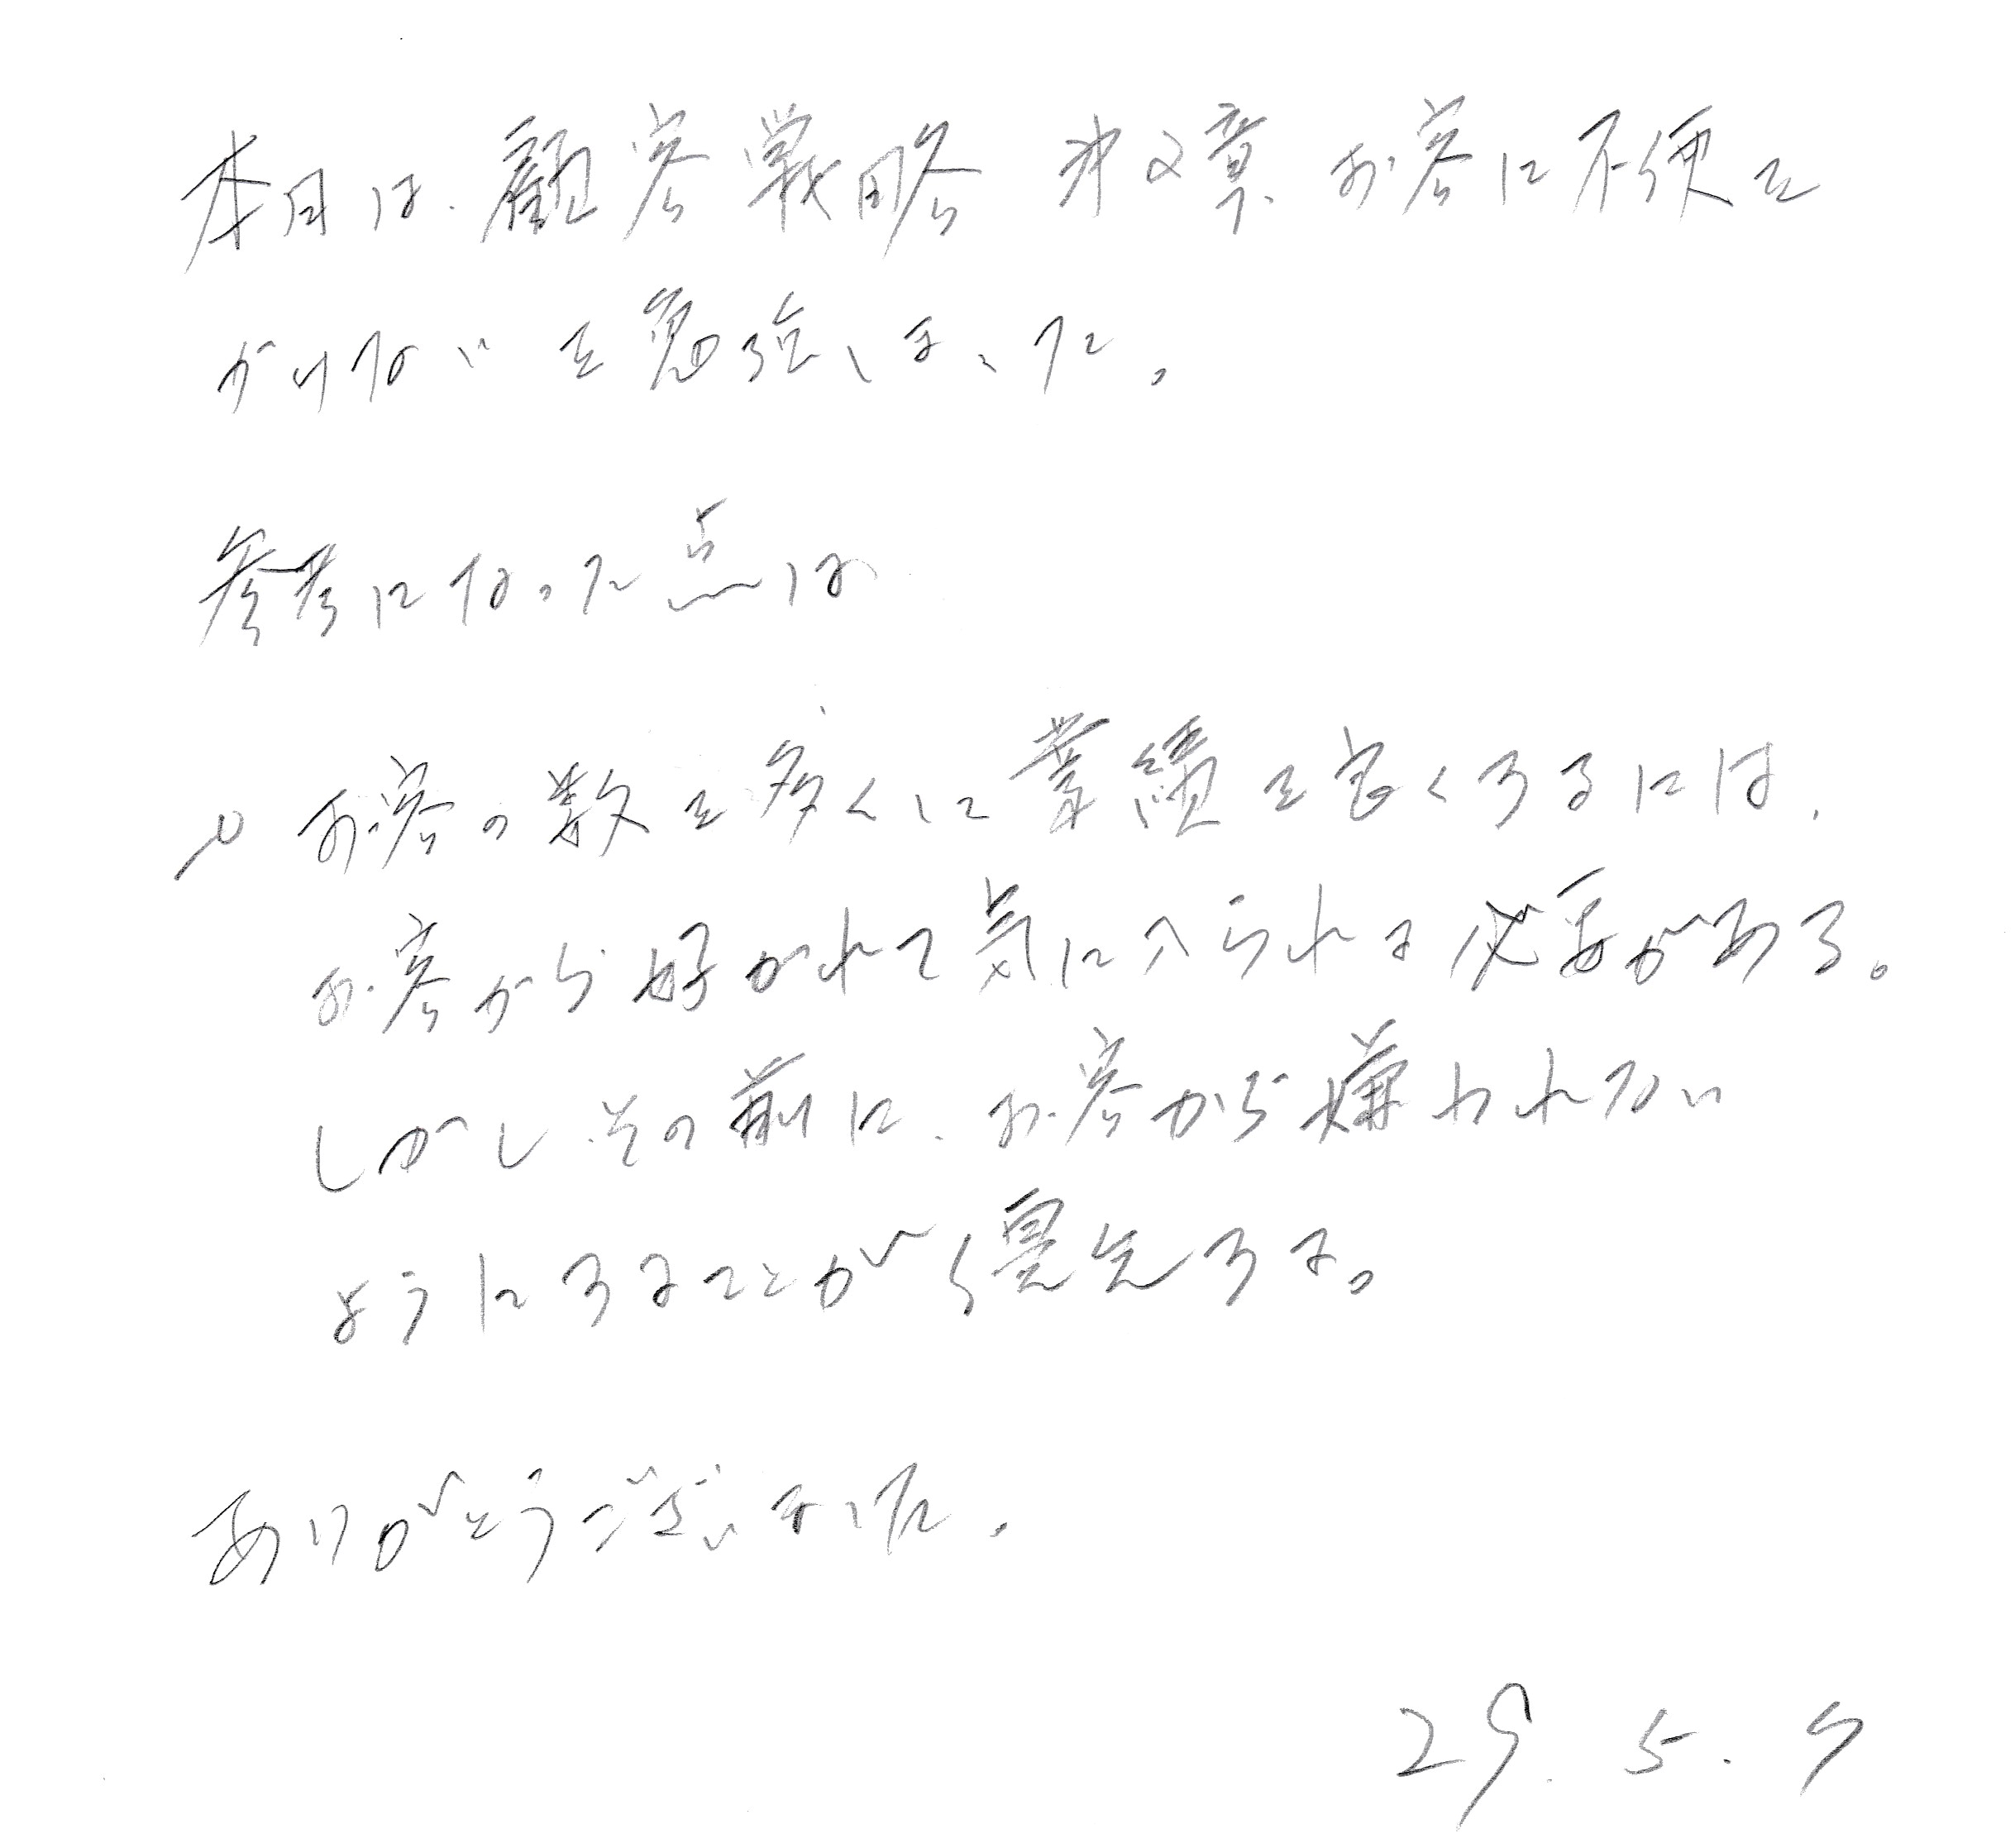 本日は、顧客戦略 才2章、お客に不便を
かけないを勉強しました。
参考になった点は
お客の数を多くに業績を良くするには、
お客から好かれて気に入られる必要がある。
しかし、その前に、お客から嫌われない
ようにすることが優先する。
ありがとうございました。
29. 5. 9